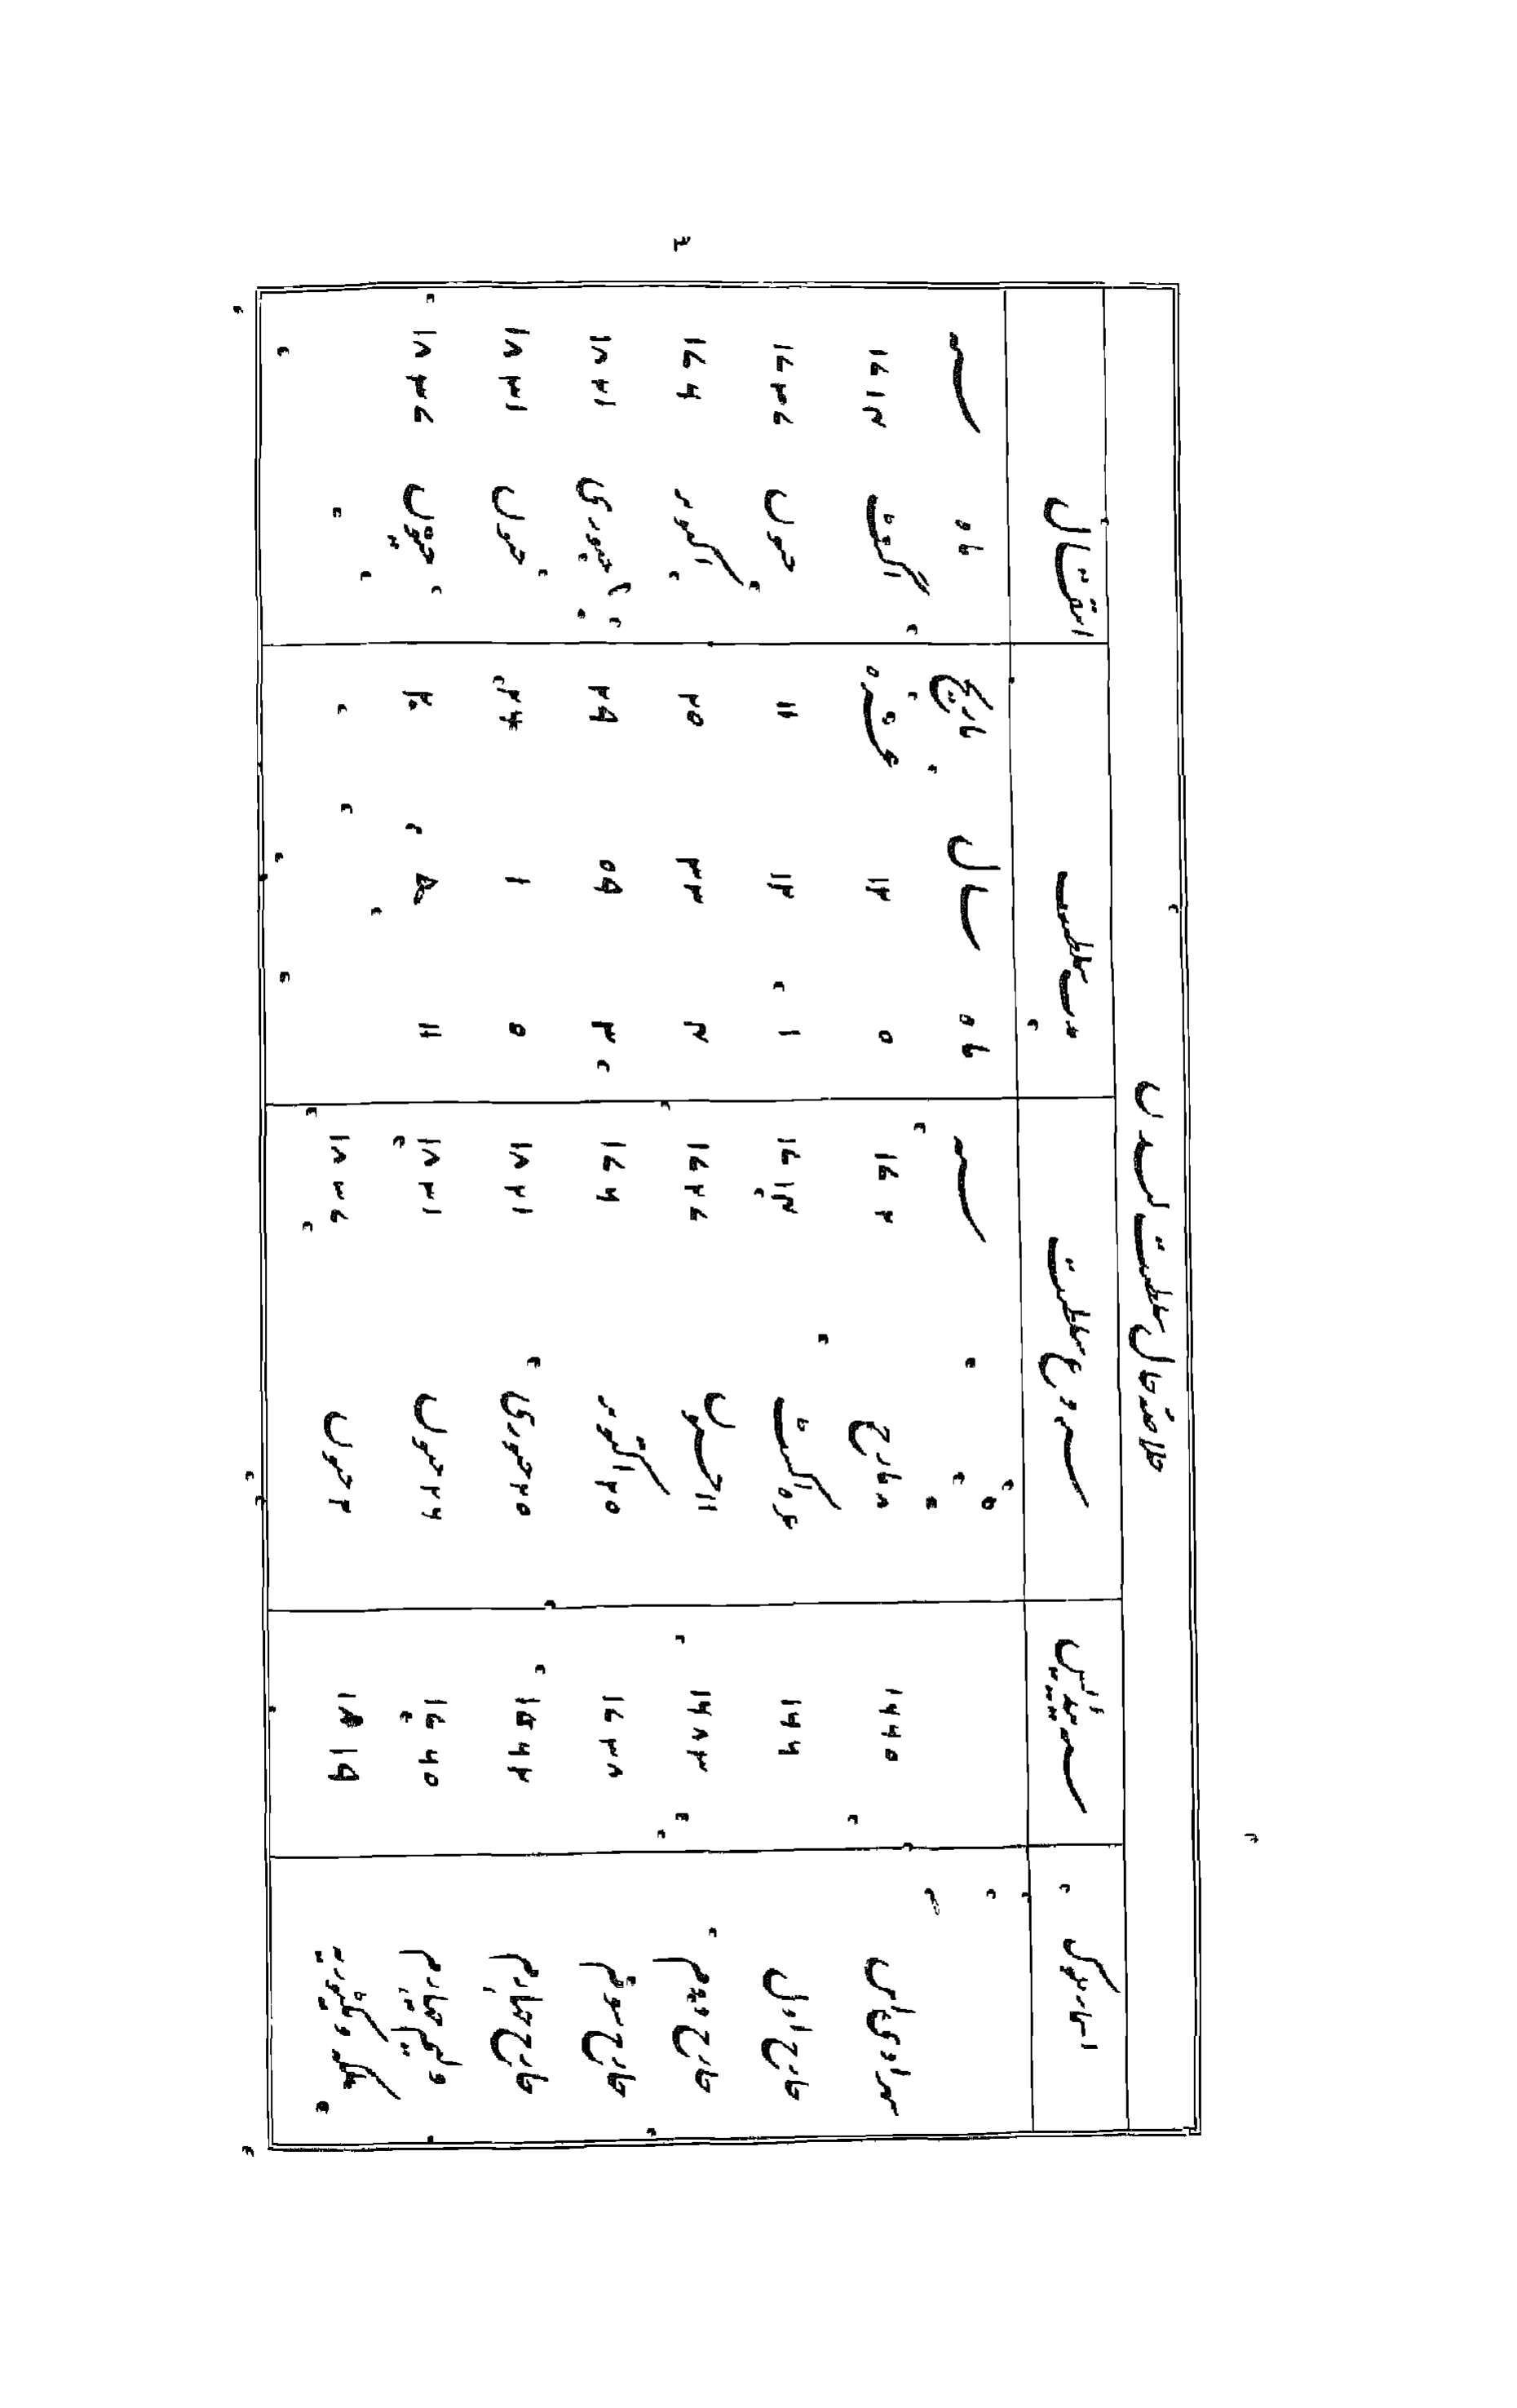 خلاصہ حال سلطنت لندن
اسمار ملوک سنہ پیدائش شروع سلطنت مدت سلطنت انتقال
سنہ ماہ سال تاریخ ماہ سنہ
۱۶۶۵ ۸ مارچ ۱۷۲ ۵ ۱۲ غرہ اگست ۱۷۱۴
جارج اول ۱۶۶ غرہ اگست ۱۷۱۴ ۱ ۱۲ ۱۱ جون ۱۷۲۷
جارج دوم ۱۶۸۳ ۱۱ جون ۱۷۲۷ ۴ ۳۳ ۲۵ اکتوبر ۱۷۶
جارج سوم ۱۷۳۸ ۲۵ اکتوبر ۱۷۶ ۳ ۵۹ ۲۹ جنوری ۱۸۲۱
جارج چہارم ۱۷۶۲ ۲۵ جنوری ۱۸۲۱ ۵ ۱ ۲۶ جون ۱۸۳۱
ولیم چہارم ۱۷۶۵ ۲۶ جون ۱۸۳۱ ۱۱ ۵ ۲۰ جون ۱۸۳۷
ملکہ ۱۸۱۹ ۲ جون ۱۸۳۷